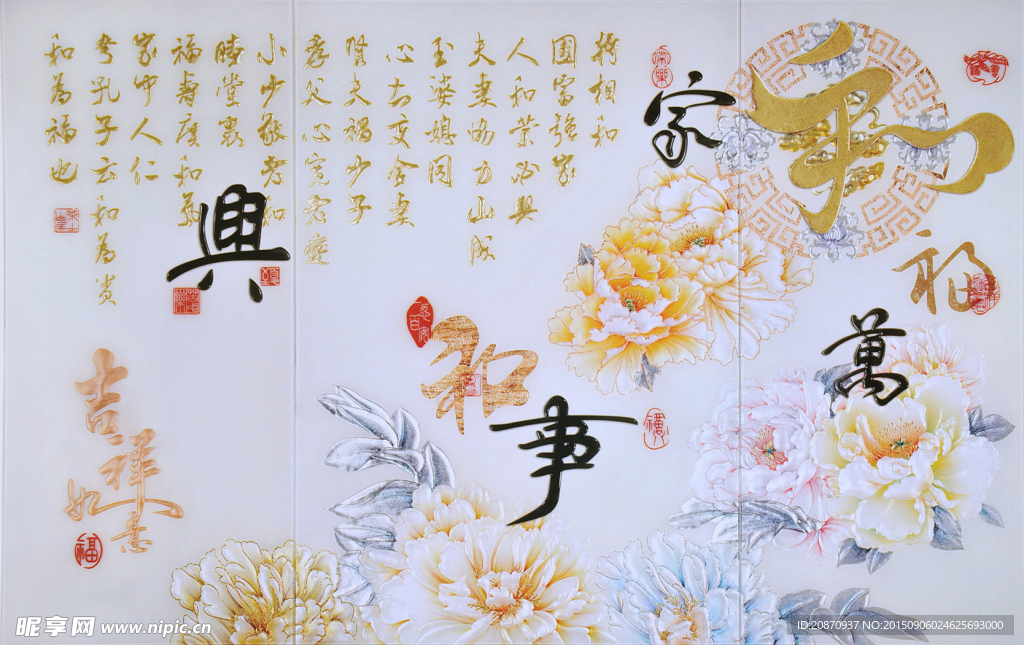 和
家
福
萬
事
和
興
將相和
國富強家
人和業必興
夫妻協力山成
玉婆媳同
心土變金妻
賢夫禍少子
孝父心寬老愛
小少敬老和
睦堂裏
福壽廣和萬
家中人仁
孝孔子云和為貴
和為福也
吉祥
如意
福
昵享网 www.nipic.cn
ID:20870937 NO:20150906024625693000